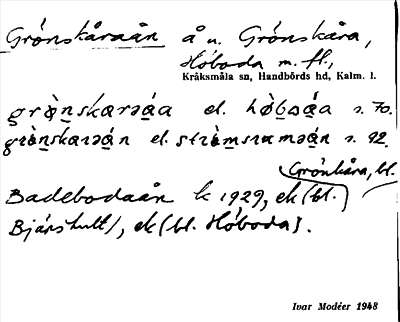 Grönskåraån å u. Grönskåra,
Höboda m. fl.,
Kråksmåla sn, Handbörds hd, Kalm. l.
grö̀n̲skæraá̲a el. hö̀boa̲á s. 70.
grö̀n̲skæraá̲n el. strö̀msrumaá̲n s. 92.
Grönskåra, bl.
Badebodaån k 1929, ek (bl.
Bjärshult), ek (bl. Höboda).
Ivar Modéer 1948